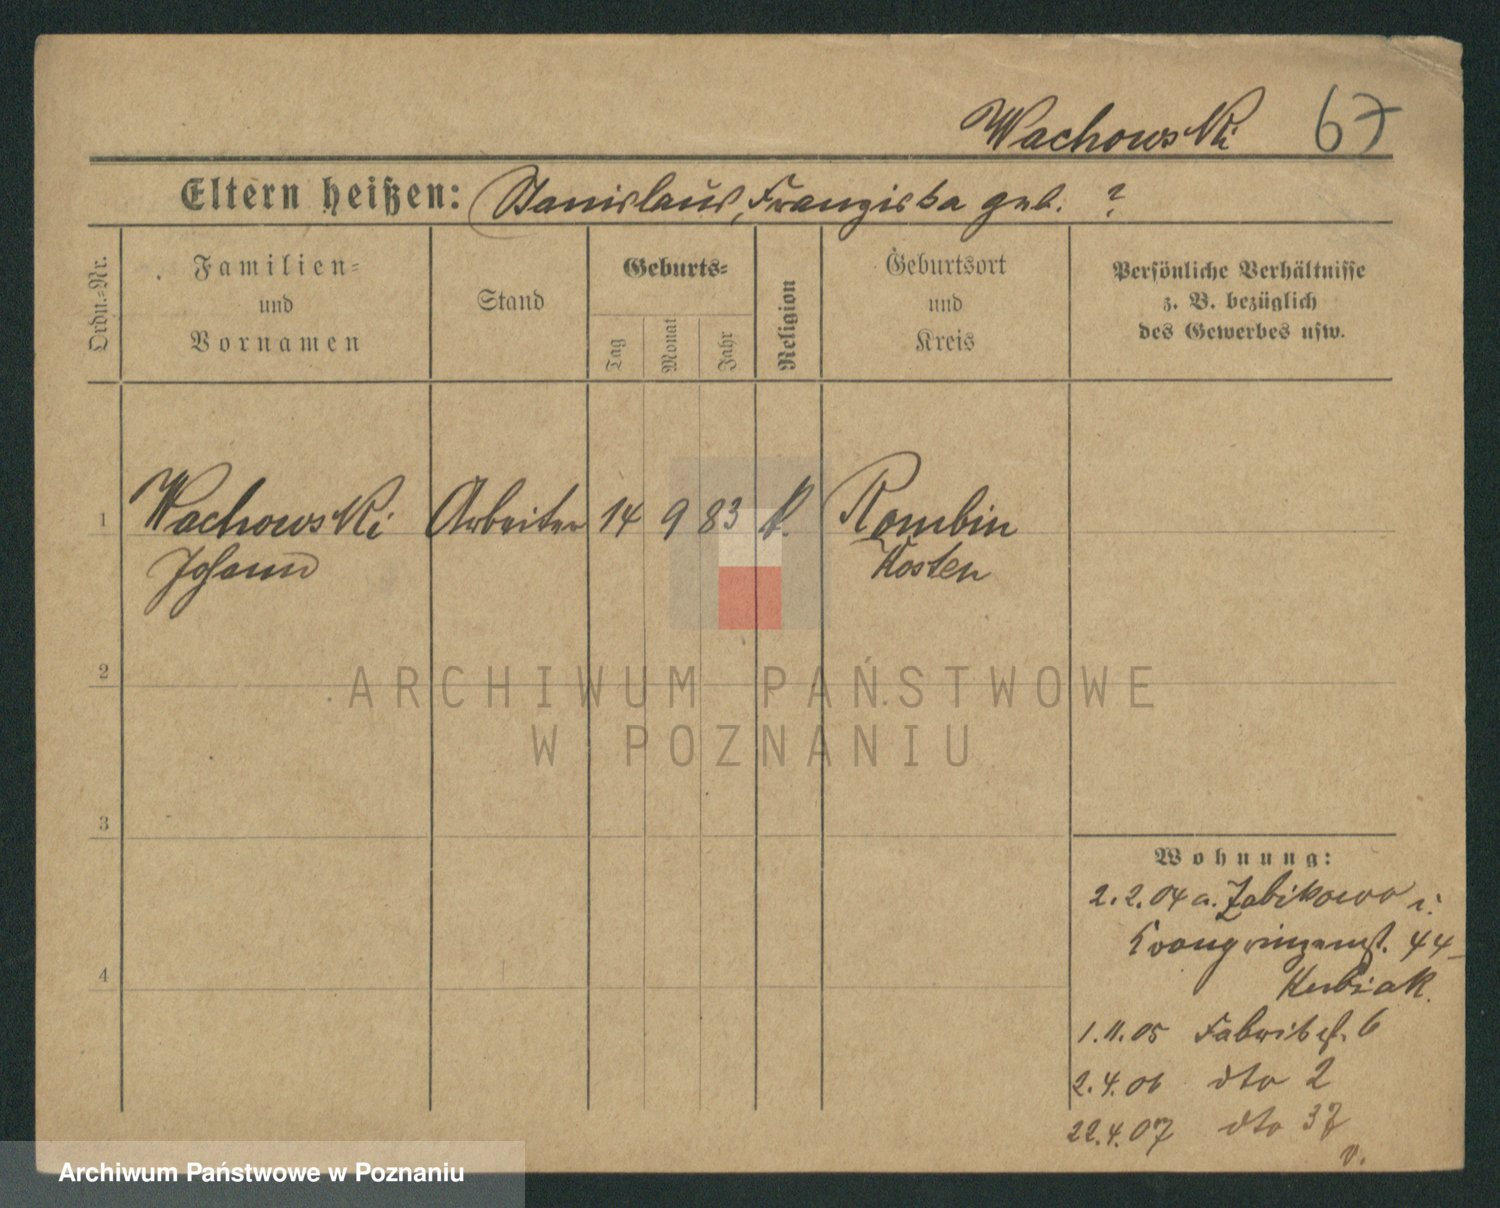 Wachowski 67
Eltern heißen: Stanislaus, Franziska geb. ?
Ordn.-Nr.
Familien-
und
Vornamen
Stand
Geburts-
Tag
Monat
Jahr
Religion
Geburtsort
und
Kreis
Persönliche Verhältnisse
z. B. bezüglich
des Gewerbes usw.
1 Wachowski Arbeiter 14 9 83 k. Rombin
Johann Kosten
2
ARCHIWUM PAŃSTWOWE
W POZNANIU
3
Wohnung:
2.2.04 a. Zabikowo i.
44
4
Kubiak.
1.11.05 Fabrikst. 6
2.4.06 dto 2
22.4.07 dto 37
v.
Archiwum Państwowe w Poznaniu